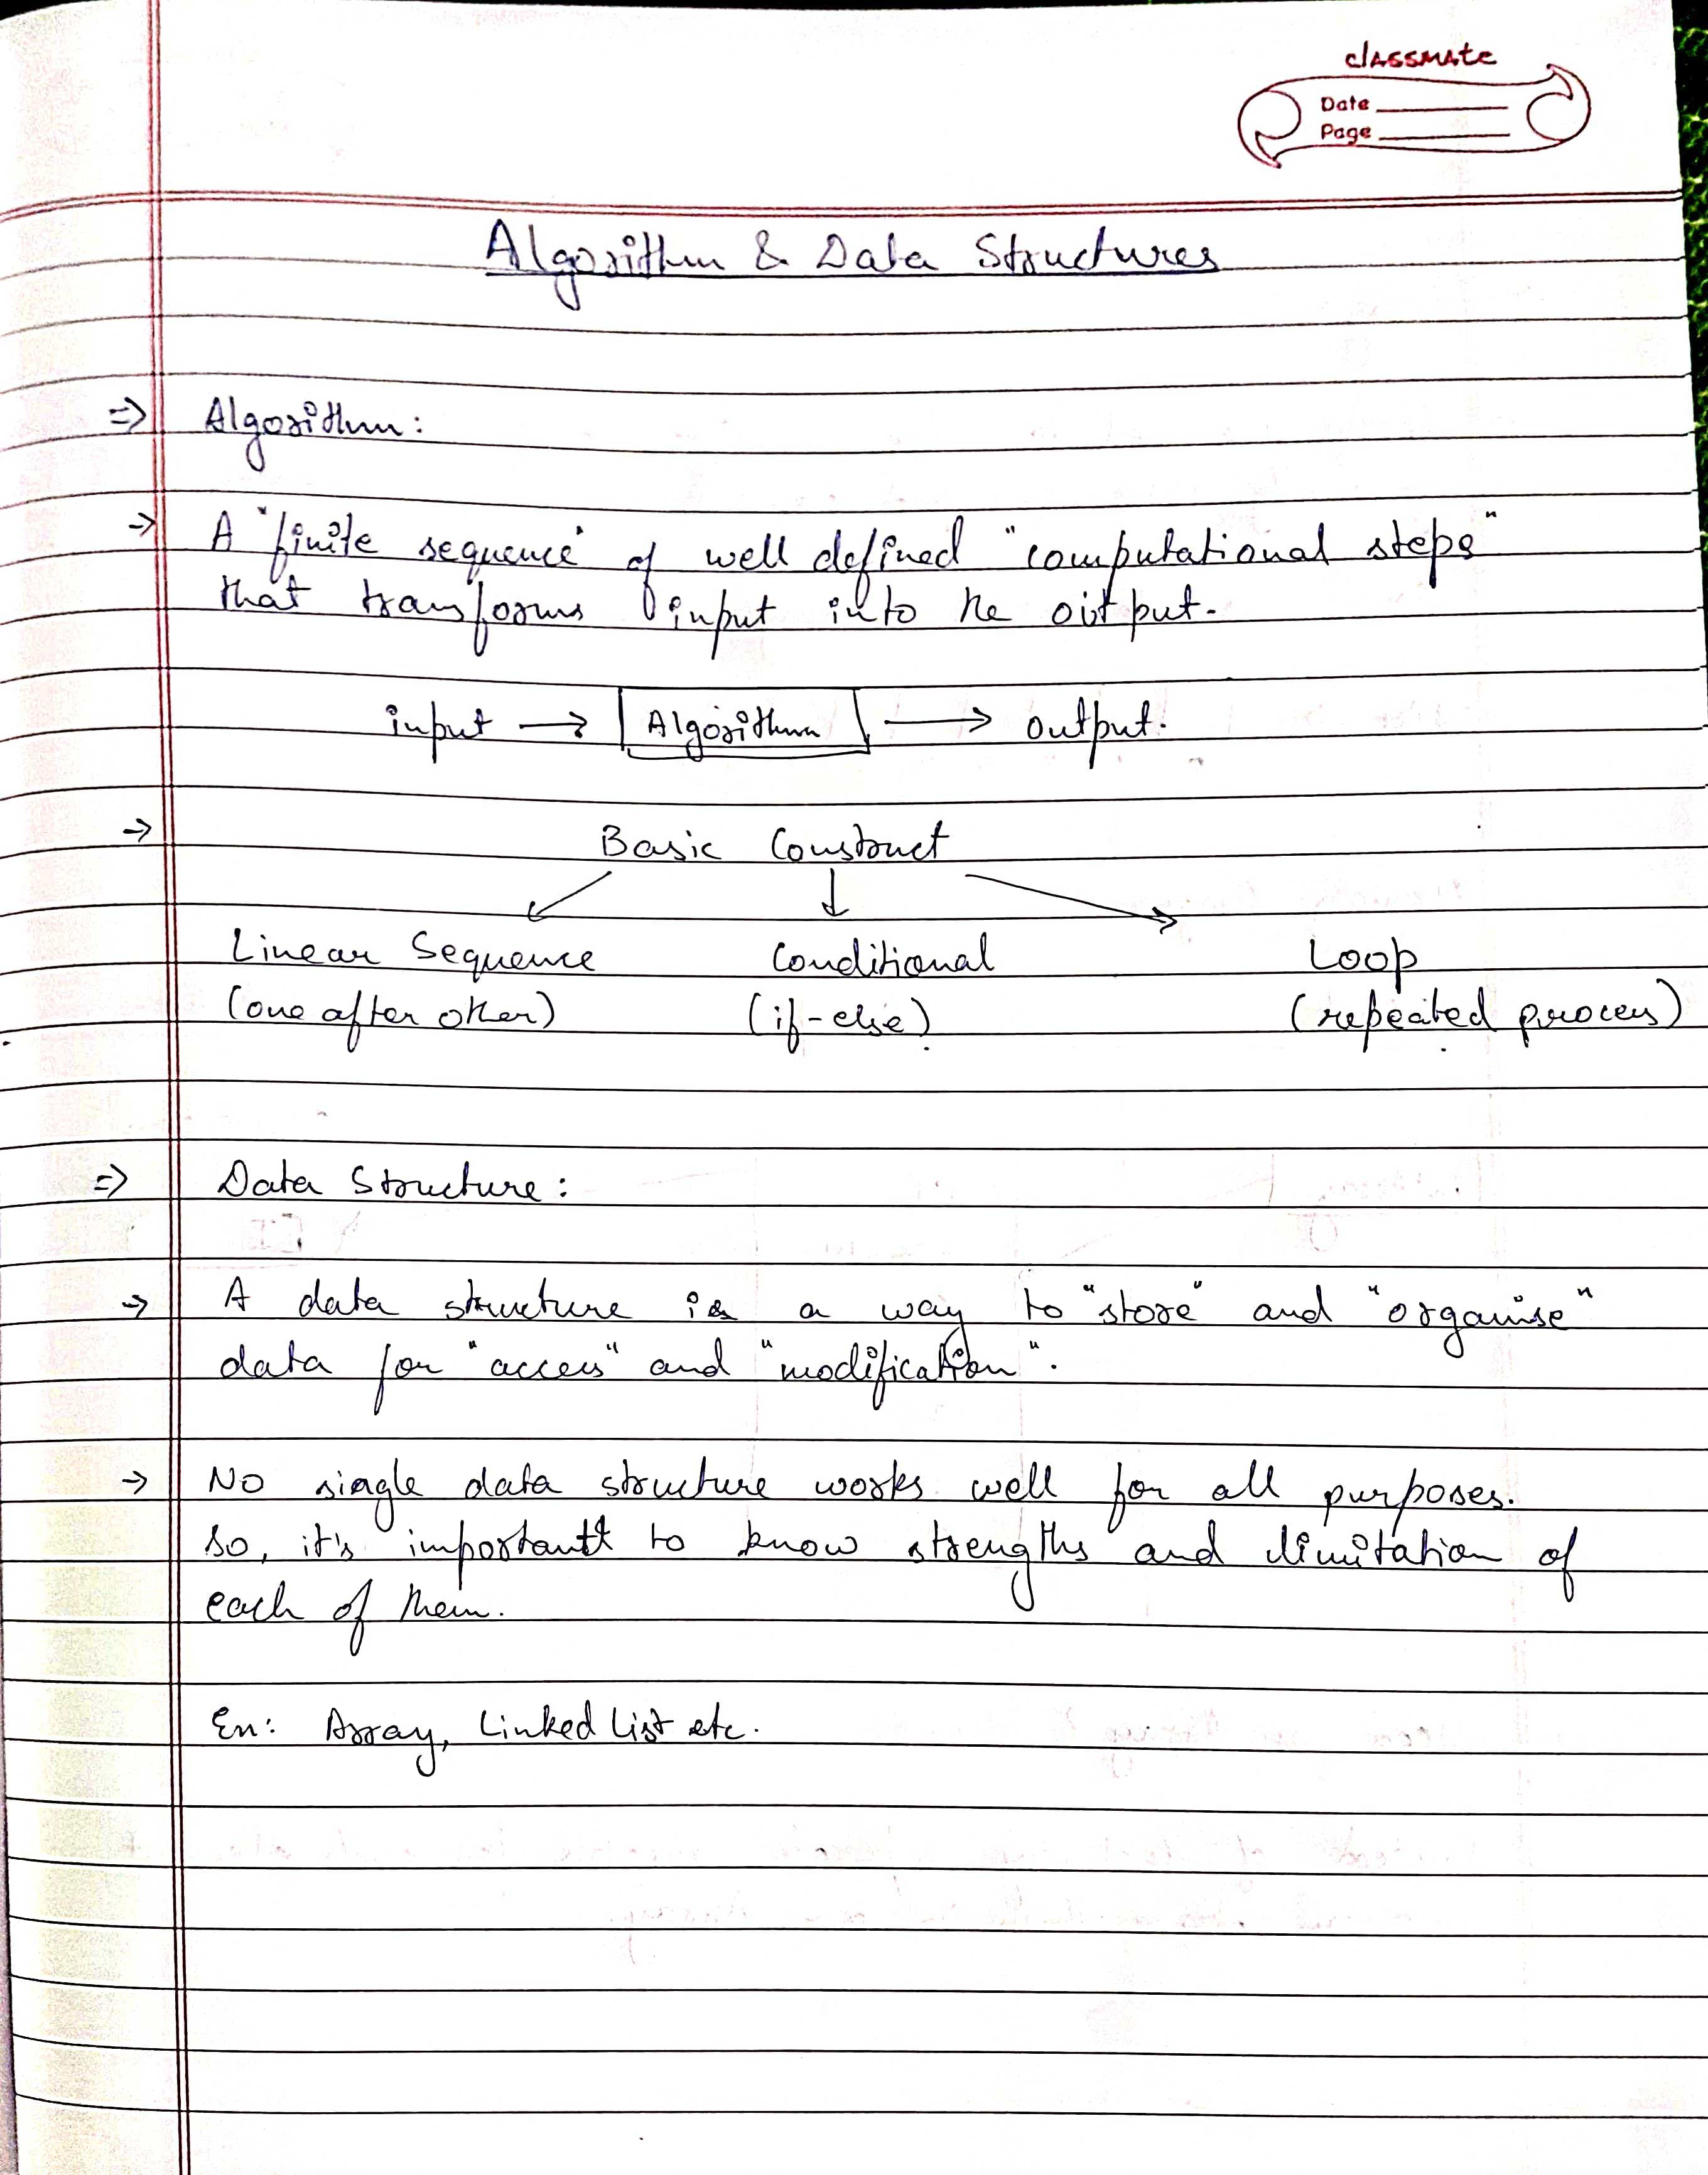 classmate
Date
Page
Algorithm & Data Structures
=> Algorithm:
-> A "finite sequence" of well defined "computational steps"
that transforms input into the output.
input -> Algorithm -> output.
-> Basic Construct
Linear Sequence Conditional Loop
(one after other) (if-else) (repeated process)
=> Data Structure:
-> A data structure is a way to "store" and "organise"
data for "access" and "modification".
-> No single data structure works well for all purposes.
so, it's important to know strengths and limitation of
each of them.
Ex: Array, Linked List etc.